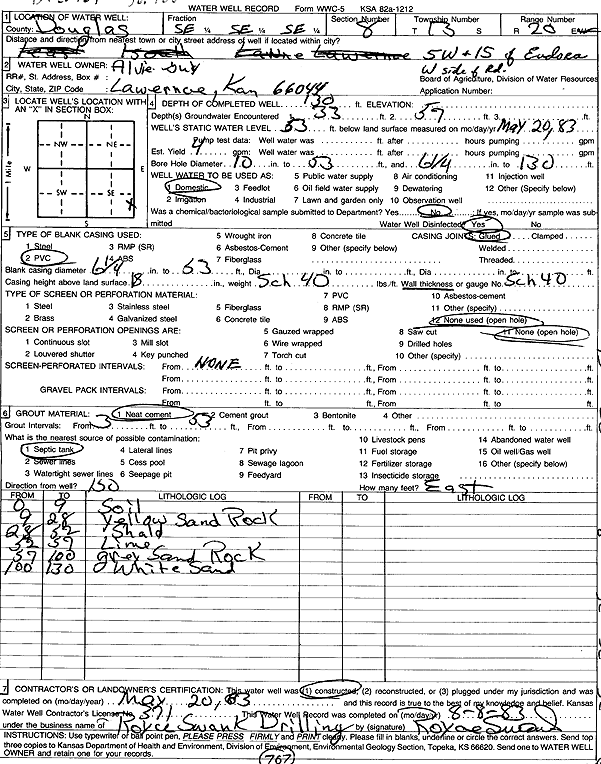 WATER WELL RECORD Form WWC-5 KSA 82a-1212
1 LOCATION OF WATER WELL: Fraction Section Number Township Number Range Number
County: Douglas SE ¼ SE ¼ SE ¼ 8 T 13 S R 20 E/W
Distance and direction from nearest town or city street address of well if located within city?
5W + 1S of Eudora
2 WATER WELL OWNER: Alvie Guy W side of Rd.
RR#, St. Address, Box # : Board of Agriculture, Division of Water Resources
City, State, ZIP Code : Lawrence, Kan 66044 Application Number:
3 LOCATE WELL'S LOCATION WITH AN "X" IN SECTION BOX:
N
NW NE
W E
SW SE
X
S
1 Mile
4 DEPTH OF COMPLETED WELL 130 ft. ELEVATION:
Depth(s) Groundwater Encountered 1 53 ft. 2 57 ft. 3
WELL'S STATIC WATER LEVEL 53 ft. below land surface measured on mo/day/yr May 20, 83
Pump test data: Well water was ft. after hours pumping gpm
Est. Yield 4 gpm: Well water was ft. after hours pumping gpm
Bore Hole Diameter 10 in. to 53 ft., and 6 1/4 in. to 130 ft.
WELL WATER TO BE USED AS: 5 Public water supply 8 Air conditioning 11 Injection well
1 Domestic 3 Feedlot 6 Oil field water supply 9 Dewatering 12 Other (Specify below)
2 Irrigation 4 Industrial 7 Lawn and garden only 10 Observation well
Was a chemical/bacteriological sample submitted to Department? Yes No ; If yes, mo/day/yr sample was sub-
mitted Water Well Disinfected? Yes No
5 TYPE OF BLANK CASING USED: 5 Wrought iron 8 Concrete tile CASING JOINTS: Glued Clamped
1 Steel 3 RMP (SR) 6 Asbestos-Cement 9 Other (specify below) Welded
2 PVC 4 ABS 7 Fiberglass Threaded
Blank casing diameter 6 1/4 in. to 53 ft., Dia in. to ft., Dia in. to ft.
Casing height above land surface 18 in., weight Sch 40 lbs./ft. Wall thickness or gauge No. Sch 40
TYPE OF SCREEN OR PERFORATION MATERIAL: 7 PVC 10 Asbestos-cement
1 Steel 3 Stainless steel 5 Fiberglass 8 RMP (SR) 11 Other (specify)
2 Brass 4 Galvanized steel 6 Concrete tile 9 ABS 12 None used (open hole)
SCREEN OR PERFORATION OPENINGS ARE: 5 Gauzed wrapped 8 Saw cut 11 None (open hole)
1 Continuous slot 3 Mill slot 6 Wire wrapped 9 Drilled holes
2 Louvered shutter 4 Key punched 7 Torch cut 10 Other (specify)
SCREEN-PERFORATED INTERVALS: From NONE ft. to ft., From ft. to ft.
From ft. to ft., From ft. to ft.
GRAVEL PACK INTERVALS: From ft. to ft., From ft. to ft.
From ft. to ft., From ft. to ft.
6 GROUT MATERIAL: 1 Neat cement 2 Cement grout 3 Bentonite 4 Other
Grout Intervals: From 3 ft. to 53 ft., From ft. to ft., From ft. to ft.
What is the nearest source of possible contamination: 10 Livestock pens 14 Abandoned water well
1 Septic tank 4 Lateral lines 7 Pit privy 11 Fuel storage 15 Oil well/Gas well
2 Sewer lines 5 Cess pool 8 Sewage lagoon 12 Fertilizer storage 16 Other (specify below)
3 Watertight sewer lines 6 Seepage pit 9 Feedyard 13 Insecticide storage
Direction from well? 150 How many feet? East
FROM TO LITHOLOGIC LOG FROM TO LITHOLOGIC LOG
0 9 Soil
9 28 Yellow Sand Rock
28 52 Shald
52 57 Lime
57 100 Grey Sand Rock
100 130 White Sand
7 CONTRACTOR'S OR LANDOWNER'S CERTIFICATION: This water well was (1) constructed, (2) reconstructed, or (3) plugged under my jurisdiction and was
completed on (mo/day/year) May 20, 83 and this record is true to the best of my knowledge and belief. Kansas
Water Well Contractor's License No. 371 This Water Well Record was completed on (mo/day/yr) 8-8-83
under the business name of Royce Swank Drilling by (signature) Royce Swank
INSTRUCTIONS: Use typewriter or ball point pen, PLEASE PRESS FIRMLY and PRINT clearly. Please fill in blanks, underline or circle the correct answers. Send top
three copies to Kansas Department of Health and Environment, Division of Environment, Environmental Geology Section, Topeka, KS 66620. Send one to WATER WELL
OWNER and retain one for your records.
(767)